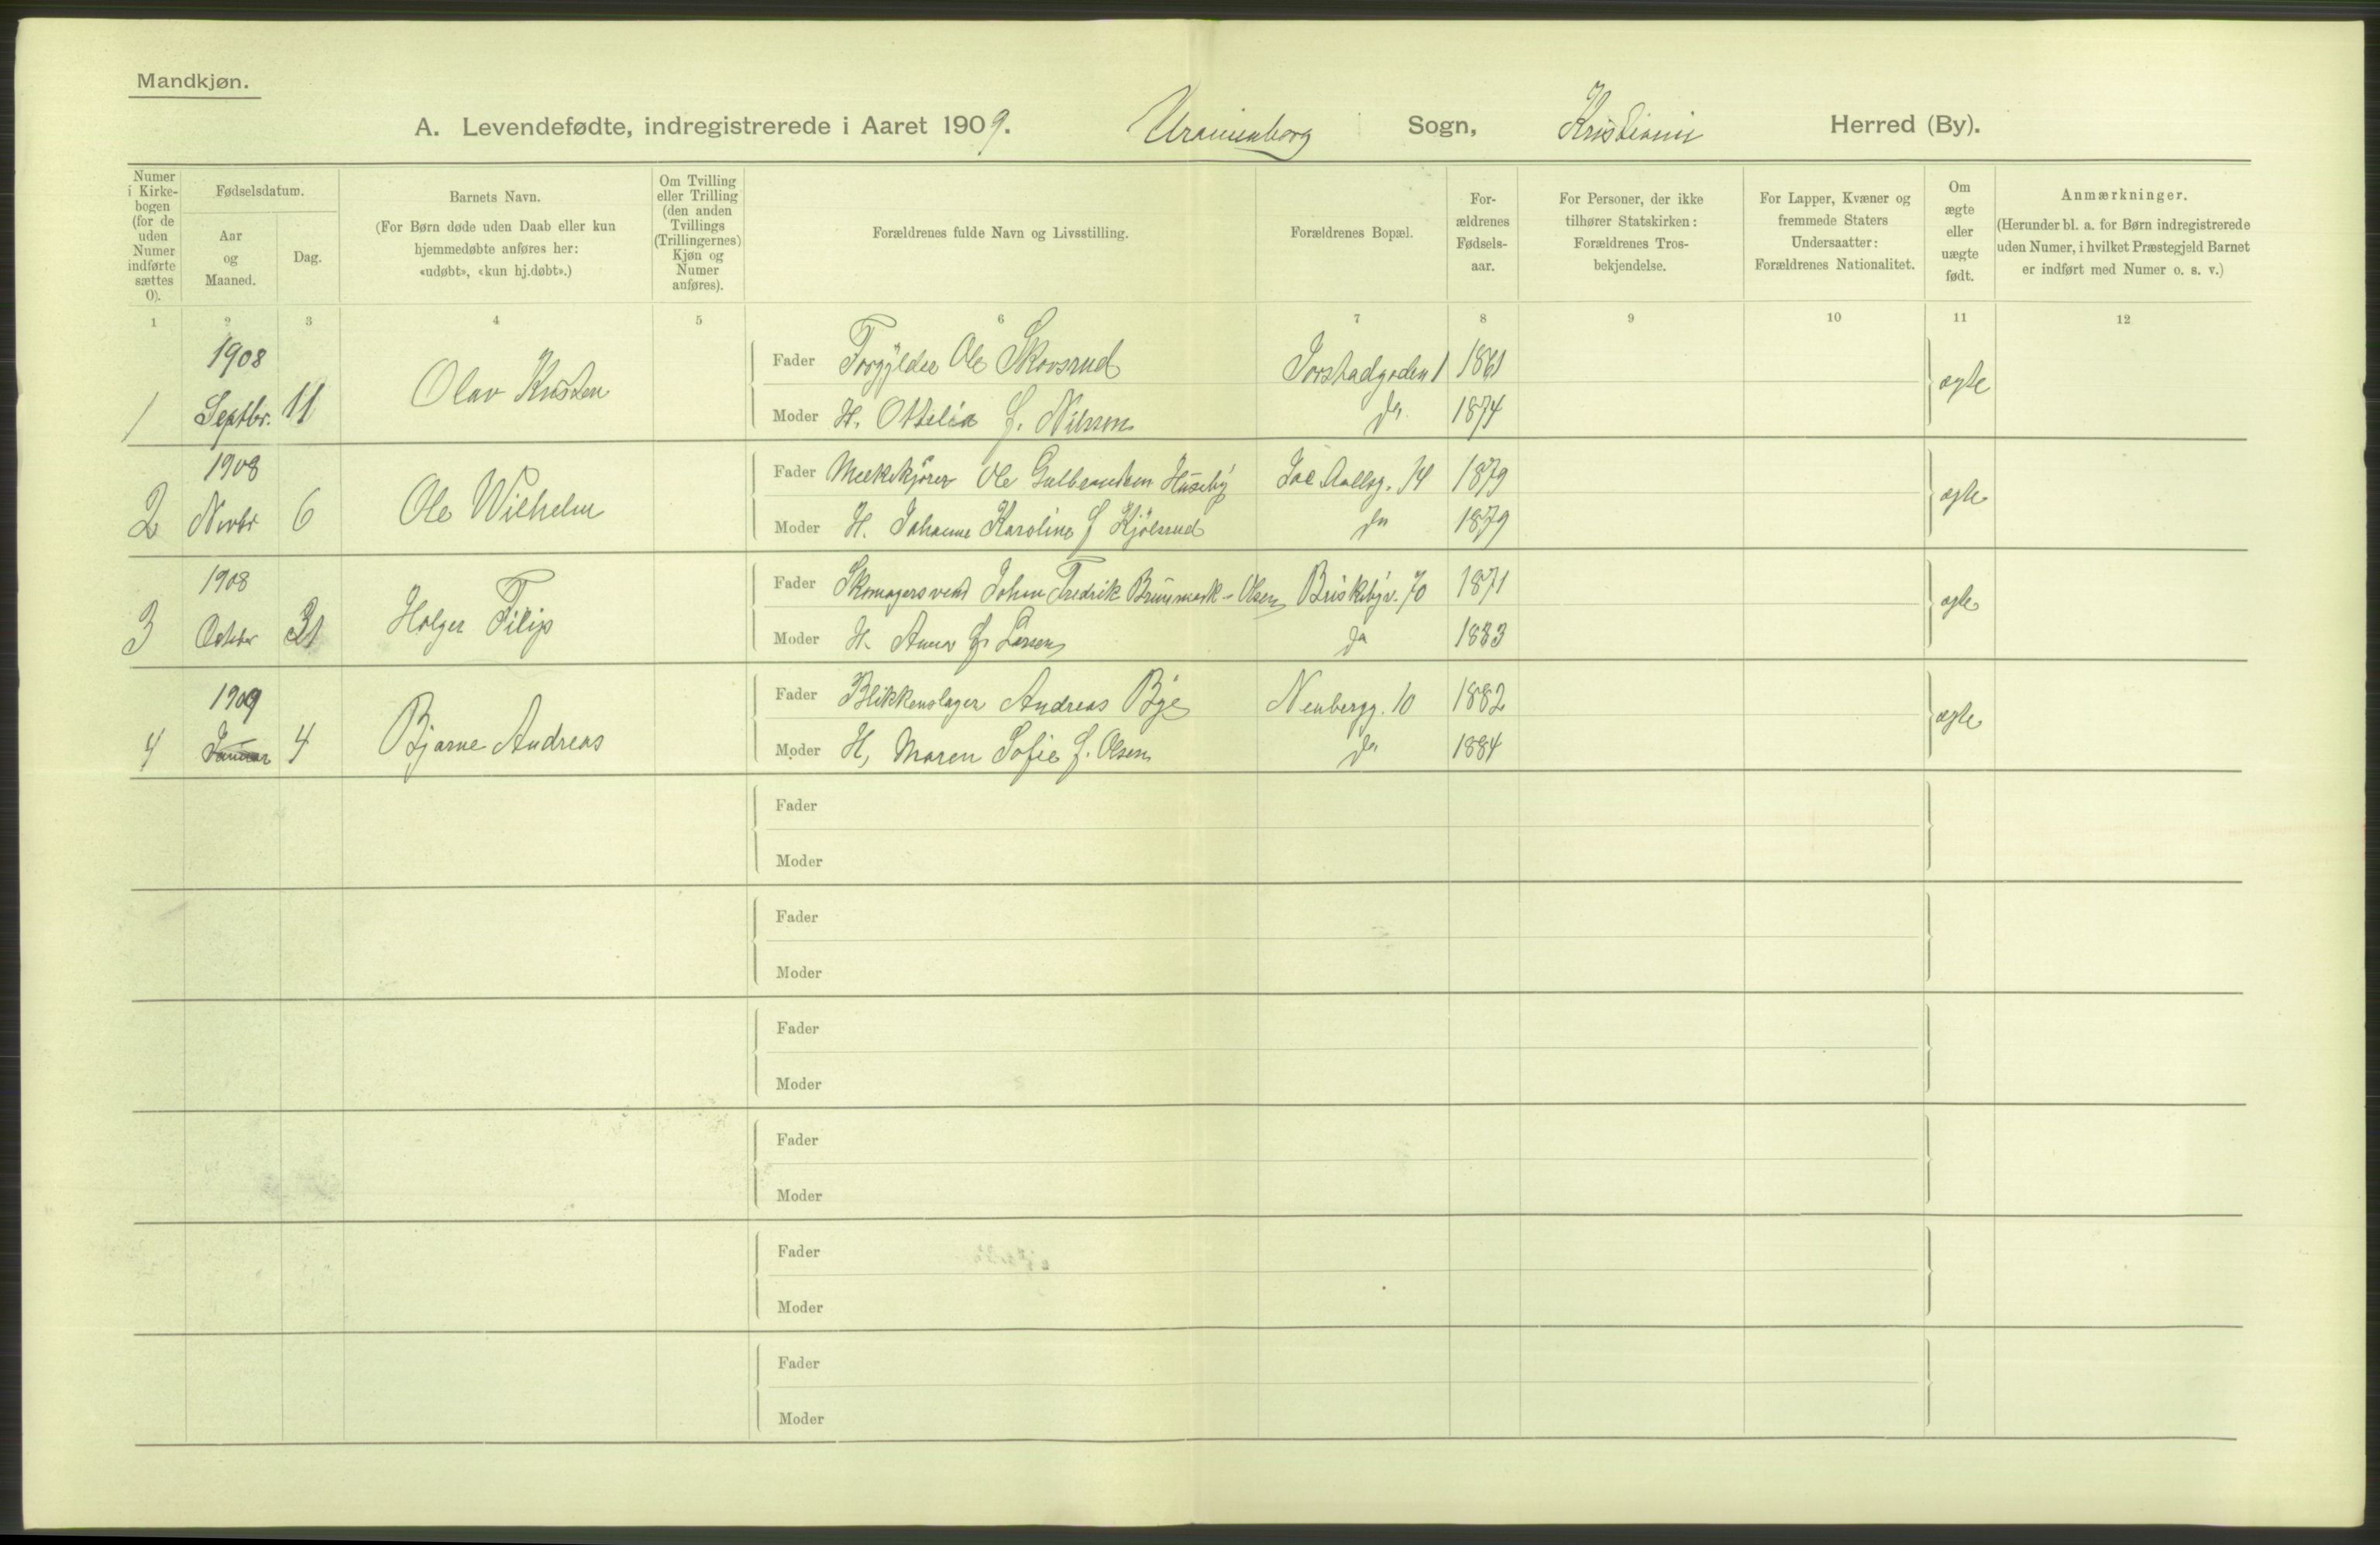 Mandkjøn.
A. Levendefødte, indregistrerede i Aaret 1909. Uranienborg Sogn, Kristiania Herred (By).
Numer i Kirkebogen (for de uden Numer indførte sættes 0).
Fødselsdatum.
Aar og Maaned.
Dag.
Barnets Navn.
(For Børn døde uden Daab eller kun hjemmedøbte anføres her: «udøbt», «kun hj.døbt».)
Om Tvilling eller Trilling (den anden Tvillings (Trillingernes) Kjøn og Numer anføres).
Forældrenes fulde Navn og Livsstilling.
Forældrenes Bopæl.
Forældrenes Fødselsaar.
For Personer, der ikke tilhører Statskirken: Forældrenes Trosbekjendelse.
For Lapper, Kvæner og fremmede Staters Undersaatter: Forældrenes Nationalitet.
Om ægte eller uægte født.
Anmærkninger.
(Herunder bl. a. for Børn indregistrerede uden Numer, i hvilket Præstegjeld Barnet er indført med Numer o. s. v.)
1 2 3 4 5 6 7 8 9 10 11 12
1 1908 Septbr. 11 Olav Kristen
Fader Forgylder Ole Skovsrud 1861 ægte
Moder H. Ottelia f. Nilssen do 1874
2 1908 Novbr 6 Ole Wilhelm
Fader Melkekjører Ole Gulbrandsen Huseby Jac Aallsg. 14 1879 ægte
Moder H. Johanne Karoline f Kjölsrud do 1879
3 1908 Octbr 31 Holger Filip
Fader Skomagersvend Johan Fredrik Olsen Briskebyv. 70 1871 ægte
Moder H. Anna f. Larsen do 1883
4 1909 Januar 4 Bjarne Andreas
Fader Blikkenslager Andreas Bye Neubergg. 10 1882 ægte
Moder H, Maren Sofie f. Olsen do 1884
Fader
Moder
Fader
Moder
Fader
Moder
Fader
Moder
Fader
Moder
Fader
Moder